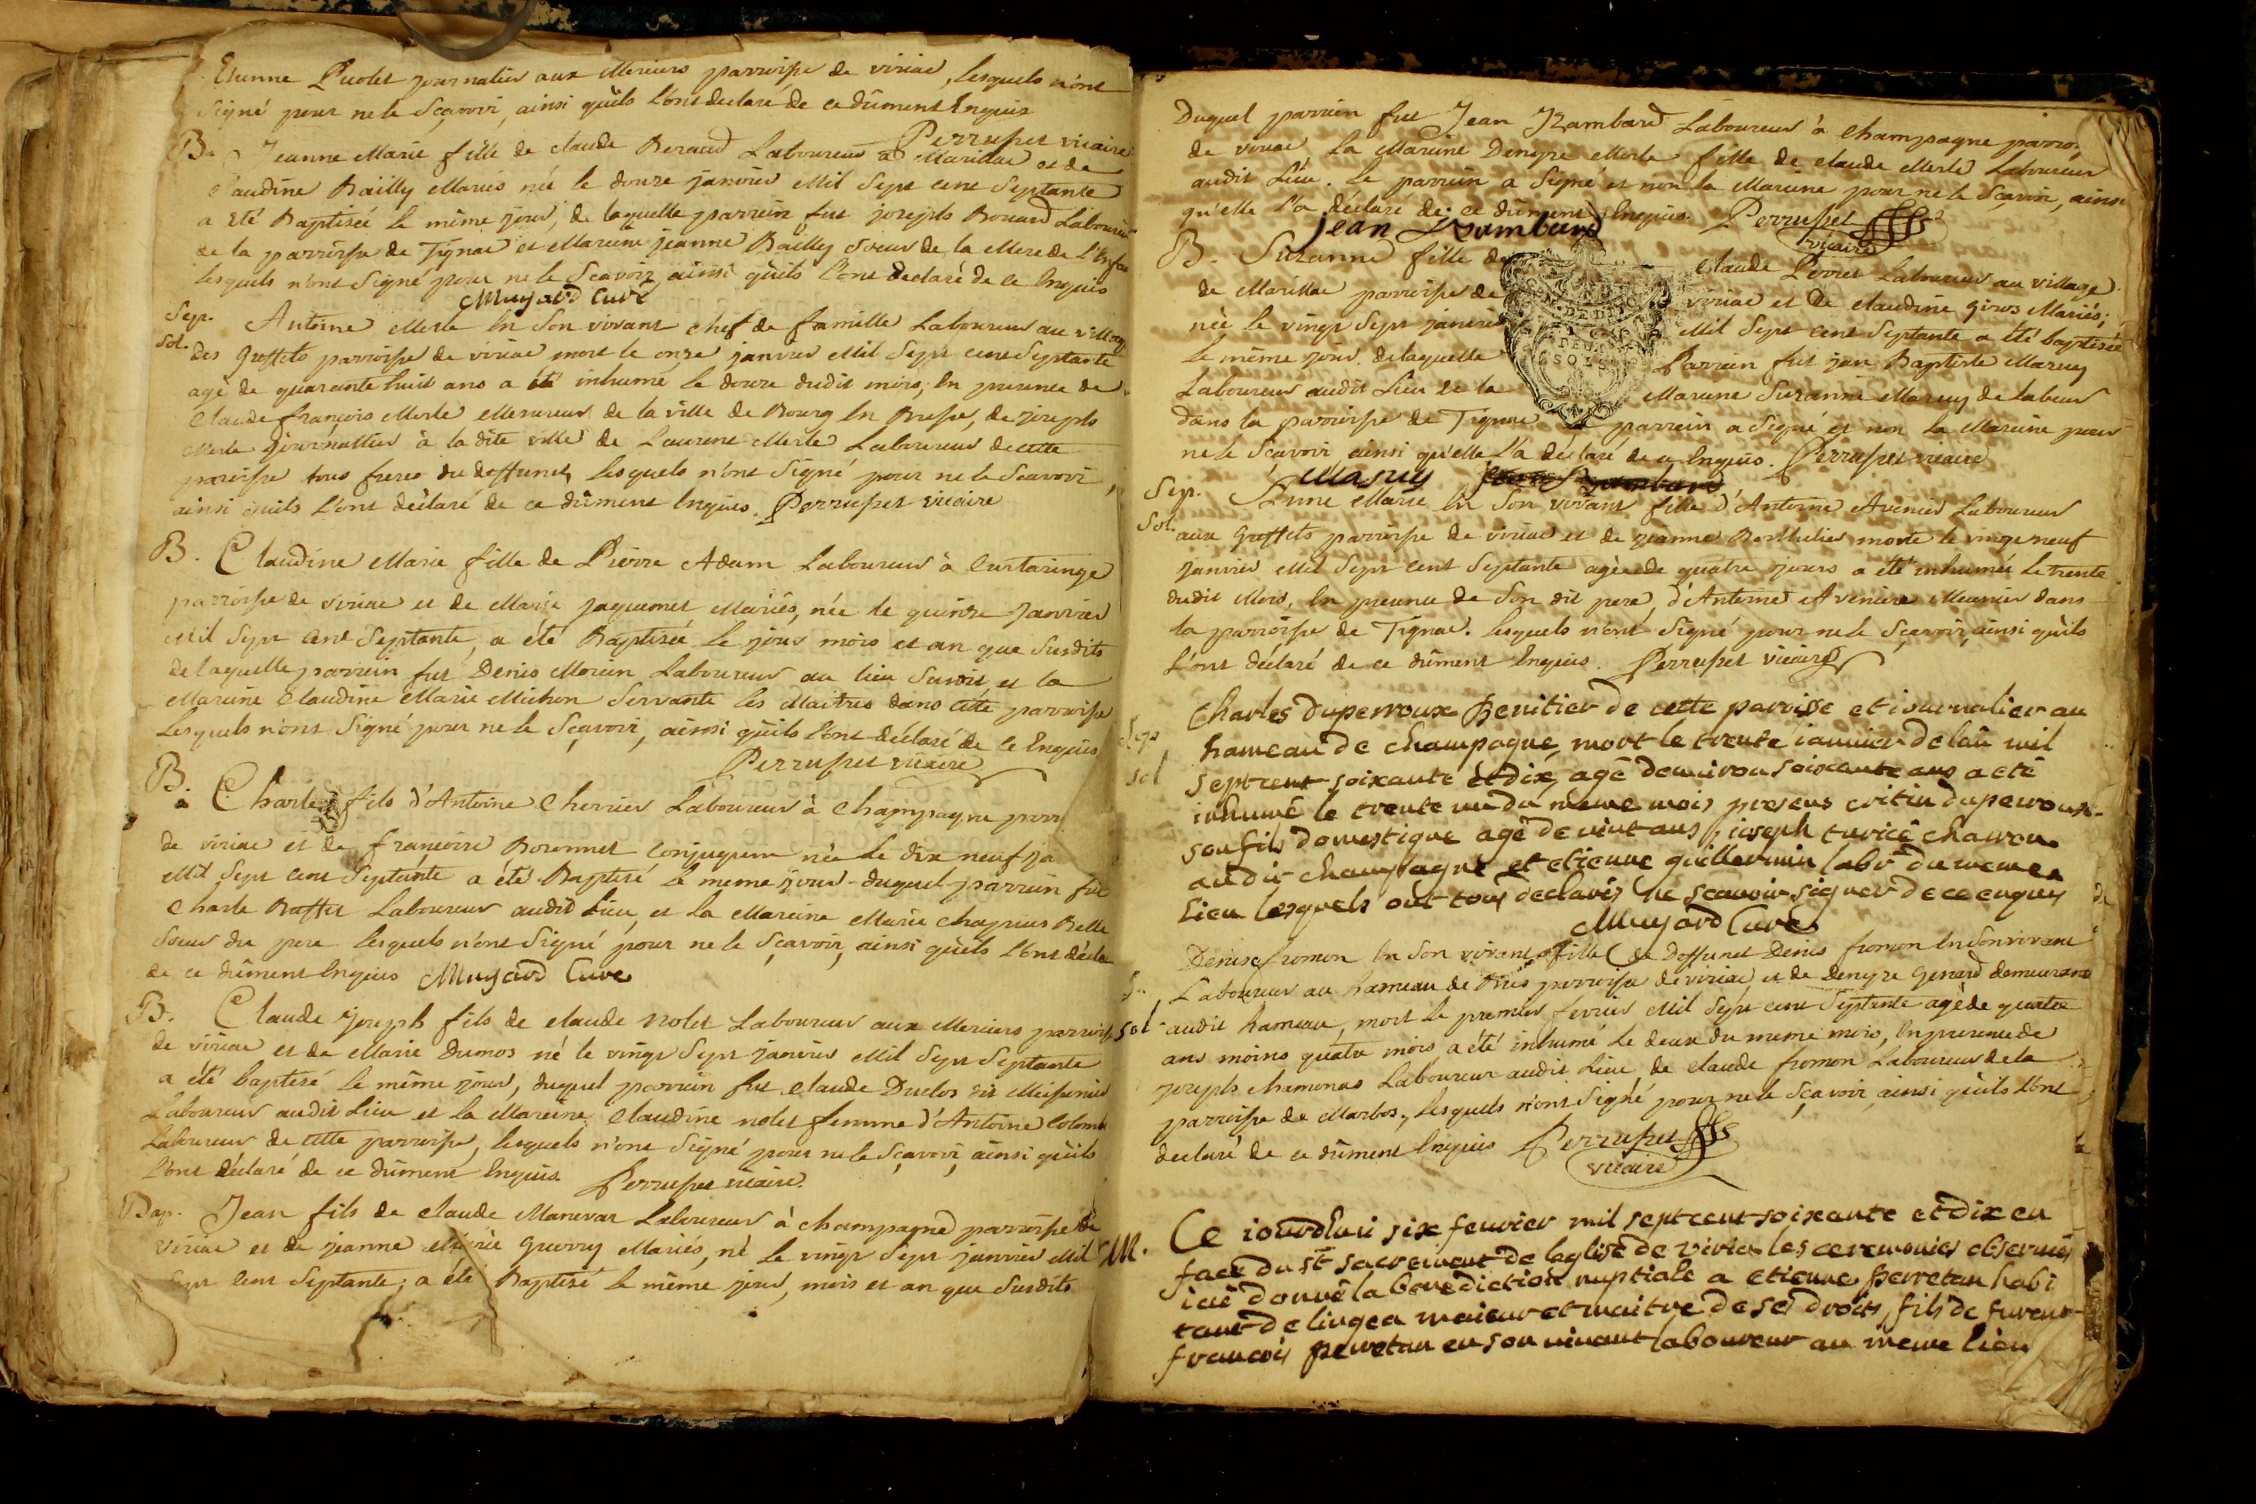 Etienne Puolet journalier aux Merciers parroisse de viriac, lesquels n'ont
signé pour ne le sçavoir, ainsi qu'ils l'ont declaré de ce dûment Enquis
Perrusset vicaire
B. Jeanne Marie fille de claude Beraud Laboureur à Marillac et de
Claudine Bailly Mariés née le douze janvier Mil Sept cent Septante
a Eté Baptisée le même jour, de laquelle parrein fut joseph Bouard Laboureur
de la parroisse de Tignac et Mareine jeanne Bailly soeur de la Mere de l'Enfant
lesquels n'ont Signé pour ne le Sçavoir ainsi qu'ils l'ont declaré de ce Enquis
Mujard Curé
Sep. Antoine Merle En Son vivant chef de famille Laboureur au village
Sol. des Greffets parroisse de viriac mort le onze janvier Mil Sept cent Septante
agé de quarante huit ans a été inhumé le douze dudit mois, En presence de
Claude françois Merle Mesureur de la ville de Bourg En Bresse, de joseph
Merle journallier à la dite ville de Laurent Merle Laboureur de cette
parroisse tous freres du deffunct, lesquels n'ont Signé pour ne le Scavoir,
ainsi qu'ils l'ont déclaré de ce dûment Enquis. Perrusset vicaire
B. Claudine Marie fille de Pierre Adam Laboureur à Curtaringe
parroisse de viriac et de Marie jaquemet Mariés, née le quinze Janvier
Mil Sept Cent Septante, a été Baptisée le jour mois et an que Susdits
de laquelle parrein fut Denis Morein Laboureur au lieu Susdit et la
Mareine Claudine Marie Michon Servante les Maitres dans cette parroisse
Lesquels n'ont Signé pour ne le Sçavoir, ainsi qu'ils l'ont déclaré de ce Enquis
Perrusset vicaire
B. Charle fils d'Antoine Cherrier Laboureur à Champagne parr
de viriac et de françoise Boronnet conjugum née le dix neuf ja
Mil Sept cent Septante a été Baptisé le meme jour duquel parrein fut
Charle Buffet Laboureur audit Lieu, et la Mareine Marie chapuis Belle
Soeur du pere lesquels n'ont Signé pour ne le Sçavoir, ainsi qu'ils l'ont décla
de ce dûment Enquis Mujard Curé
B. Claude joseph fils de claude nolet Laboureur aux Merciers parroisse
de viriac et de Marie dumos né le vingt Sept janvier Mil Sept Septante
a été baptisé le même jour, duquel parrein fut claude Duclos dit Meissonier
Laboureur audit Lieu et la Mareine Claudine nolet femme d'Antoine Colomb
Laboureur de cette parroisse, lesquels n'ont Signé pour ne le Sçavoir, ainsi qu'ils
l'ont déclaré de ce dûment Enquis Perrusset vicaire.
Bap. Jean fils de claude Maneval Laboureur à champagne parroisse de
viriac et de jeanne Marie Guerry Mariés, né le vingt Sept janvier Mil
Sept Cent Septante, a été Baptisé le même jour, mois et an que Susdits
Duquel parrein fut Jean Rambard Laboureur à Champagne parro.
de viriac la Mareine Denyse Merle fille de claude Merle Laboureur
audit Lieu. Le parrein a Signé et non la Mareine pour ne le Sçavoir, ainsi
qu'elle l'a déclaré de ce dûment Enquis. Perrusset
vicaire
Jean Rambard
B. Suzanne fille de claude Perret Laboureur au village
de Marillac parroisse de viriac et de claudine giros Mariés;
née le vingt Sept janvier Mil Sept cent Septante a été baptisée
le même jour, delaquelle Parrein fut jean Baptiste Maruy
Laboureur audit Lieu et la Mareine Suzanne Maruy de Labeur
dans la parroisse de Tignac parrein a Signé et non la Mareine pour
ne le Sçavoir ainsi qu'elle l'a déclaré de ce Enquis. Perrusset vicaire
Masuy
Sep. Anne Marie En Son vivant fille d'Antoine Avenier Laboureur
Sol. aux Greffets parroisse de viriac et de jeanne Berthelier morte le vingt neuf
janvier Mil Sept cent Septante agée de quatre jours a été inhumée le trente
dudit Mois, En presence de Son dit pere, d'Antoine Aveniere Meunier dans
la parroisse de Tignac. lesquels n'ont Signé pour ne le Sçavoir, ainsi qu'ils
l'ont déclaré de ce dûment Enquis. Perrusset vicaire
Charles duperroux Benitier de cette paroisse et iournalier au
Sep hameau de champagne, mort le trente ianvier de lan mil
sol sept cent soixante et dix, agé denviron soixante ans a eté
inhumé le trente un du meme mois presens critin duperroux
son fils domestique agé de vint ans, ioseph curice charron
audit champagne et etienne guillermin labr du meme
lieu lesquels ont tous declarés ne scavoir signer de ce enquis
Mujard Curé
Denise fromon En Son vivant fille de deffunct Denis fromon En Son vivant
Laboureur au hameau de Riis parroisse de viriac, et de denyse Genard demeurant
sol audit hameau, mort le premier fevrier Mil Sept cent Septante agé de quatre
ans moins quatre mois a été inhumé le deux du meme mois, En presence de
joseph chamonas Laboureur audit Lieu de claude fromon Laboureur de la
parroisse de Marbos, lesquels n'ont Signé pour ne le Sçavoir ainsi qu'ils l'ont
declaré de ce dûment Enquis Perrusset
vicaire
M. Ce iourdhui six fevrier mil sept cent soixante et dix en
face du st sacrement de leglise de viria les ceremonies observées
iai donné la benediction nuptiale a etienne perretan habi
tant de lingea maieur et maitre de ses droits, fils de furent
francois perretan en son vivant laboureur au meme lieu